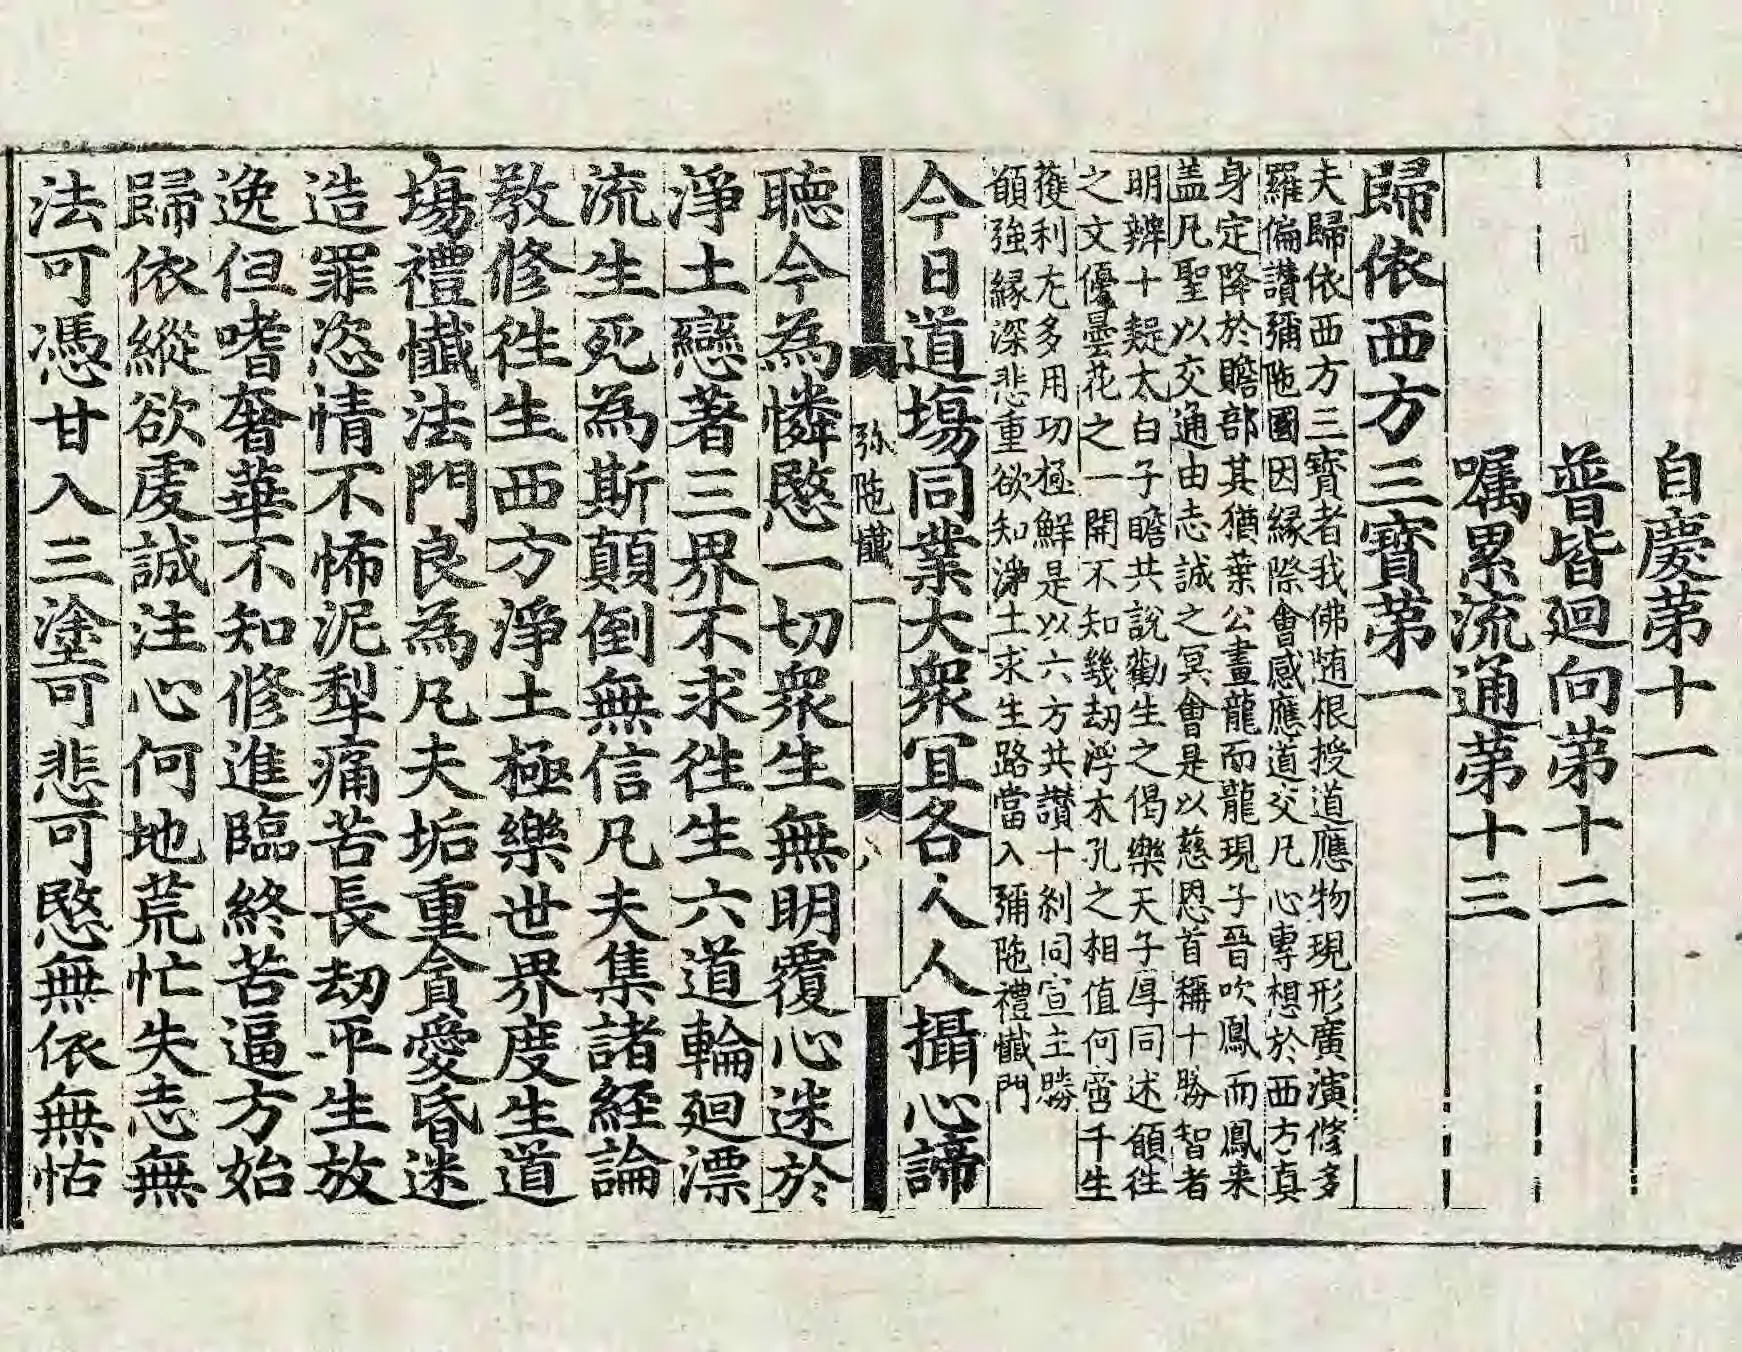 自慶第十一
普皆迴向第十二
嘱累流通第十三
歸依西方三寶第一
夫歸依西方三寶者我佛随根授道應物現形廣演修多
羅偏讚彌陁國因緣際會感應道交凡心專想於西方真
身定降於贍部其猶葉公畫龍而龍現子晉吹鳳而鳳来
盖凡聖以交通由志誠之冥會是以慈恩首稱十勝智者
明辨十疑太白子瞻共說勸生之偈樂天子厚同述願往
之文優曇花之一開不知幾劫浮木孔之相值何啻千生
獲利尤多用功極鮮是以六方共讚十刹同宣土勝
願強緣深悲重欲知淨土求生路當入彌陁禮懺門
今日道場同業大衆宜各人人攝心諦
弥陁懺一
八
聽今為憐愍一切衆生無明覆心迷於
淨土戀著三界不求徃生六道輪迴漂
流生死為斯顛倒無信凡夫集諸経論
教修徃生西方淨土極樂世界度生道
場禮懺法門良為凡夫垢重貪愛昏迷
造罪恣情不怖泥犁痛苦長劫平生放
逸但嗜奢華不知修進臨終苦逼方始
歸依縱欲虔誠注心何地荒忙失志無
法可憑甘入三塗可悲可愍無依無怙